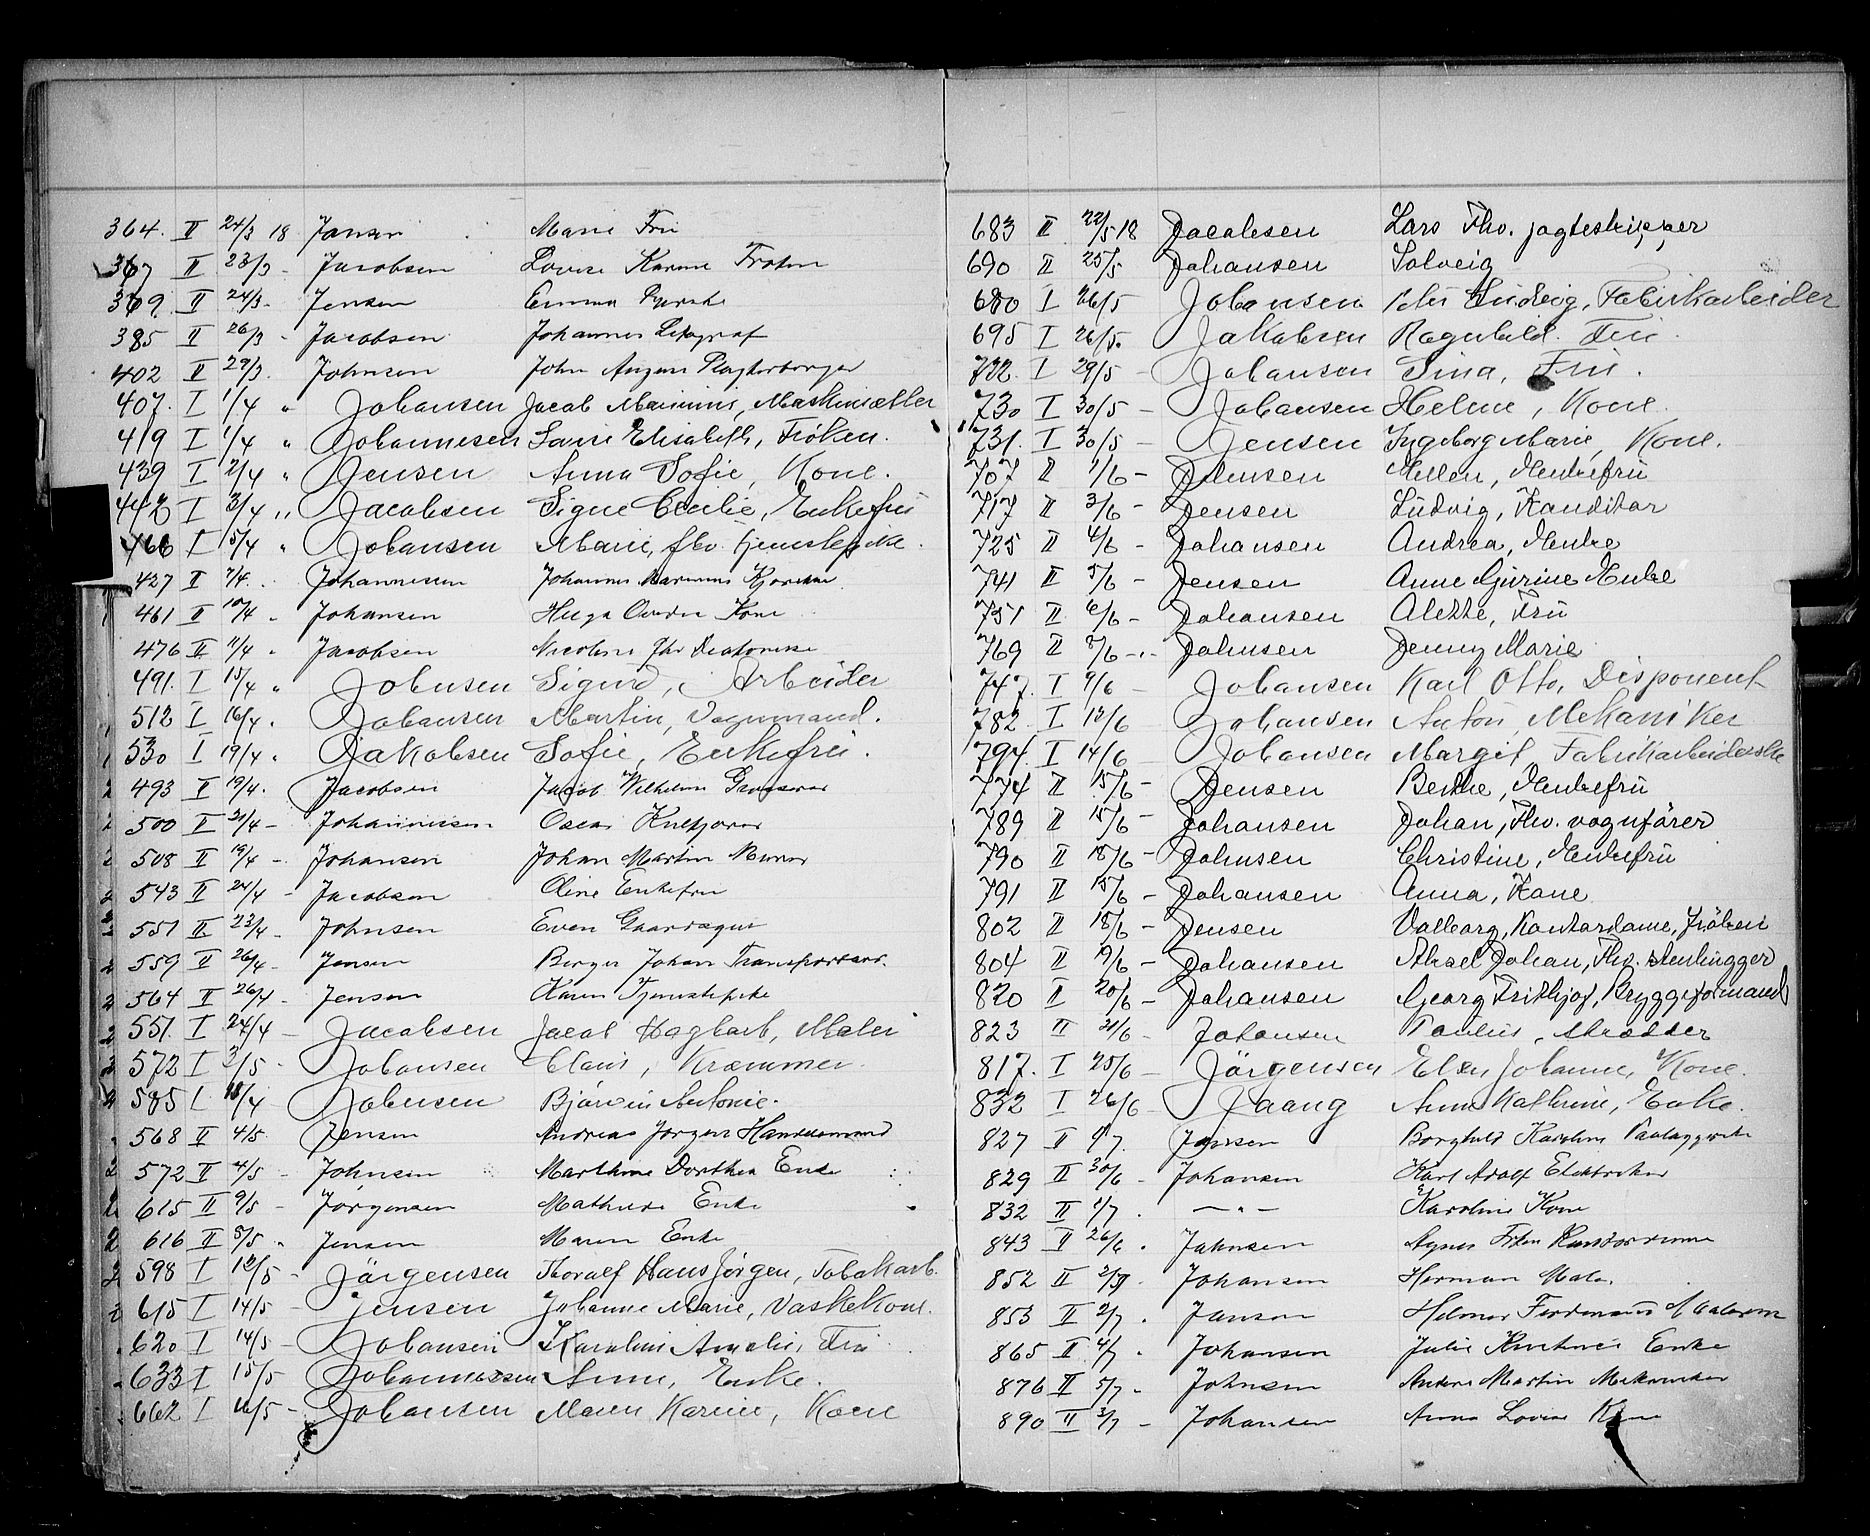 364. II 24/3 18 Jansen Marie Fru
367 II 23/3 - Jacobsen Lovise Karine Frøken
369. II 24/3 - Jensen Emma
385 II 26/3 - Jacobsen Johannes
402 II 29/3. Johnsen John August
407. I 1/4 " Johansen Jacob Marinius, Maskinsætter
419 I 1/4 " Johannesen Elisabeth, Frøken.
439 I 2/4 " Jensen Anna Sofie, Kone.
442 I 3/4 " Jacobsen Signe Cecilie, Enkefru
466 I 5/4 " Johansen Marie, fhv. tjenestepike.
427 II 7/4 . Johannesen Johannes Marinius
461 II 10/4 " Johansen Kone
476 II 11/4 " Jacobsen Nicoline fhv Diakonisse
491. I 15/4 " Johnsen Sigurd, Arbeider
512 I 16/4 . Johansen Martin, Vognmand.
530 I 19/4 " Jakobsen Sofie, Enkefru.
493 II 19/4 . Jacobsen Jacob Wilhelm
500 II 21/4 - Johannesen Oscar
508 II 19/4 - Johansen Johan Martin Murer
543 II 24/4 - Jacobsen Oline Enkefru
551 II 23/4 - Johnsen Even
559 II 26/4 - Jensen Birger Johan
564 II 26/4 - Jensen Karen Tjenestepike
551. I 24/4 - Jacobsen Jacob Hagbart, Maler
572 I 3/5 - Johansen Claus, Kræmmer.
585 I 18/4 - Johnsen Antonie.
568 II 4/5 Jensen Andreas Jørgen Handelsmand
572 II 4/5 - Johnsen Marthine Dorthea Enke
615 II 9/5 - Jørgensen Mathilde Enke
616 II 5/5 " Jensen Maren Enke
598 I 12/5 - Jørgensen Thoralf Hans Jørgen, Tobakarb.
615 I 14/5 - Jensen Johanne Marie, Vaskekone.
620 I 14/5 - Johansen Karoline Amalie, Fru
633 I 15/5 Johannessen Anne, Enke.
662 I 16/5 - Johansen Maren Karine, Kone
683 II 22/5 18 Jacobsen Lars Fhv. jagteskipper
690 II 25/5 Johansen Solveig
680 I 26/5 Johansen Peter Ludvig, Fabrikarbeider
695 I 26/5. Jakobsen Ragnhild. Fru.
722. I 29/5 - Johansen Sina, Fru.
730 I 30/5 - Johansen Helene, Kone.
731. I 30/5 - Jensen Ingeborg Marie, Kone.
707 II 1/6 - Jensen Ellen, Enkefru
717 II 3/6 - Jensen Ludvig, Kanditor
725 II 4/6 - Johansen Andrea, Enke
741 II 5/6 - Jensen Anne Gurine Enke
751 II 6/6 - Johansen Alette, Fru
769 II 8/6 - Johnsen Jenny Marie
747. I 9/6 - Johansen Karl Otto, Disponent
782. I 12/6 Johansen Anton, Mekaniker
794. I 14/6 Johansen Margit, Fabrikarbeiderske
774 II 15/6 - Jensen Berthe, Enkefru
789 II 15/6 - Johansen Johan, Fhv. vognfører
790 II 18/6 - Johnsen Christine, Enkefru
791 II 15/6 - Johansen Anna, Kone
802 II 18/6 - Jensen Valborg, Kontordame, Frøken
804 II 19/6 - Johansen Aksel Johan, Fhv. stenhugger
820 II 20/6 - Johansen Georg Frithjof, Bryggeformand
823 II 21/6 - Johansen Paulus, Skrædder
817. I 25/6 - Jørgensen Elen Johanne, Kone.
832 I 26/6 - Jaang Anne Kathrine, Enke.
827 II 1/7. Jansen Borghild Karoline
829 II 30/6 - Johansen Karl Adolf Elektriker
832 II 1/7 . — " — Karoline Kone
843 II 26/6 . Johnsen Agnes Frøken Kontordame
852 II 2/7 - Johansen Herman Maler
853 II 2/7 . Jansen Helmer Ferdinand
865 II 4/7 . Johansen Julie Enke
876 II 5/7 - Johnsen Anders Martin Mekaniker
890 II 3/7 - Johansen Anna Lovise Kone